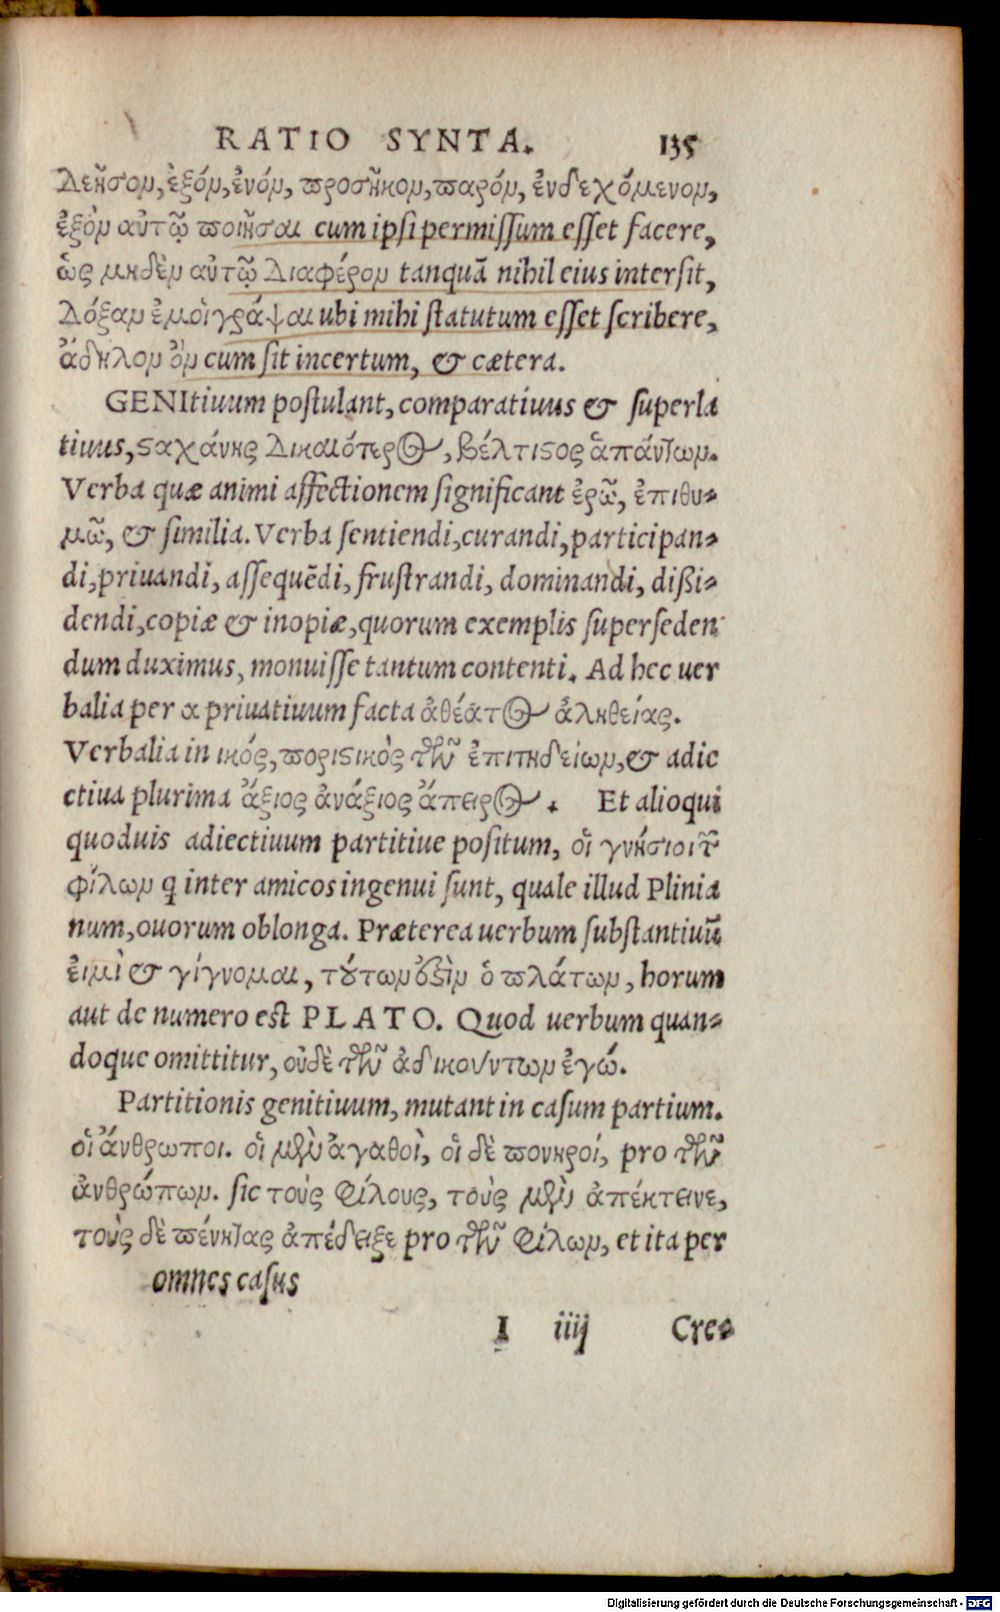 RATIO SYNTA. 135
Δεῆσον, ἐξόν, ἐνόν, προσῆκον, παρόν, ἐνδεχόμενον,
ἐξὸν αὐτῷ ποιῆσαι cum ipsi permissum esset facere,
ὡς μηδὲν αὐτῷ Διαφέρον tanquā nihil eius intersit,
Δόξαν ἐμοὶ γράψαι ubi mihi statutum esset scribere,
ἄδηλον ὂν cum sit incertum, & cætera.
GENItiuum postulant, comparatiuus & superla
tiuus, ϛαχάνης Δικαιότερος, βέλτιϛος ἁπάντων.
Verba quæ animi affectionem significant ἐρῶ, ἐπιθυ-
μῶ, & similia. Verba sentiendi, curandi, participan-
di, priuandi, assequēdi, frustrandi, dominandi, dißi-
dendi, copiæ & inopiæ, quorum exemplis superseden
dum duximus, monuisse tantum contenti. Ad hec uer
balia per α priuatiuum facta ἀθέατος ἀληθείας.
Verbalia in ικός, ποριϛικὸς τῶν ἐπιτηδείων, & adie
ctiua plurima ἄξιος ἀνάξιος ἄπειρος. Et alioqui
quoduis adiectiuum partitiue positum, οἱ γνήσιοι τῶν
φίλων q inter amicos ingenui sunt, quale illud Plinia
num, ouorum oblonga. Præterea uerbum substantiuū
εἰμὶ & γίγνομαι, τούτων ἐϛὶν ὁ πλάτων, horum
aut de numero est PLATO. Quod uerbum quan-
doque omittitur, οὐδὲ τῶν ἀδικούντων ἐγώ.
Partitionis genitiuum, mutant in casum partium.
οἱ ἄνθρωποι. οἱ μὲν ἀγαθοὶ, οἱ δὲ πονηροί, pro τῶν
ἀνθρώπων. sic τοὺς φίλους, τοὺς μὲν ἀπέκτεινε,
τοὺς δὲ πένητας ἀπέδειξε pro τῶν φίλων, et ita per
omnes casus
I iiij Cre-
Digitalisierung gefördert durch die Deutsche Forschungsgemeinschaft - DFG